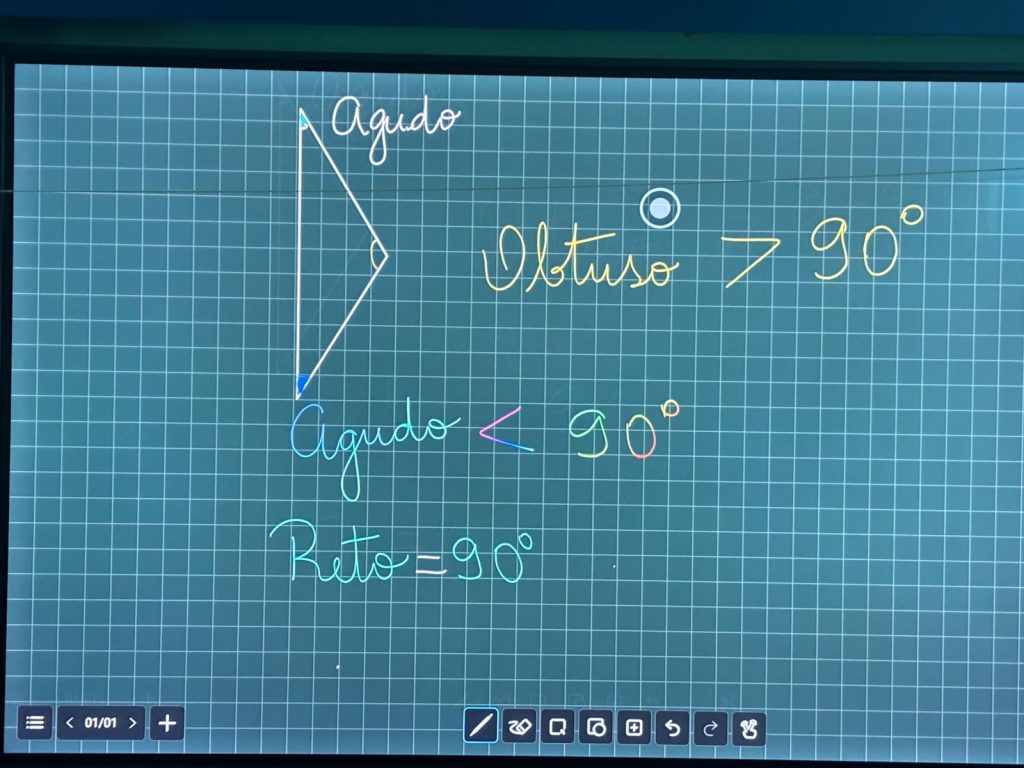 Agudo
Obtuso > 90°
Agudo < 90°
Reto = 90°
01/01